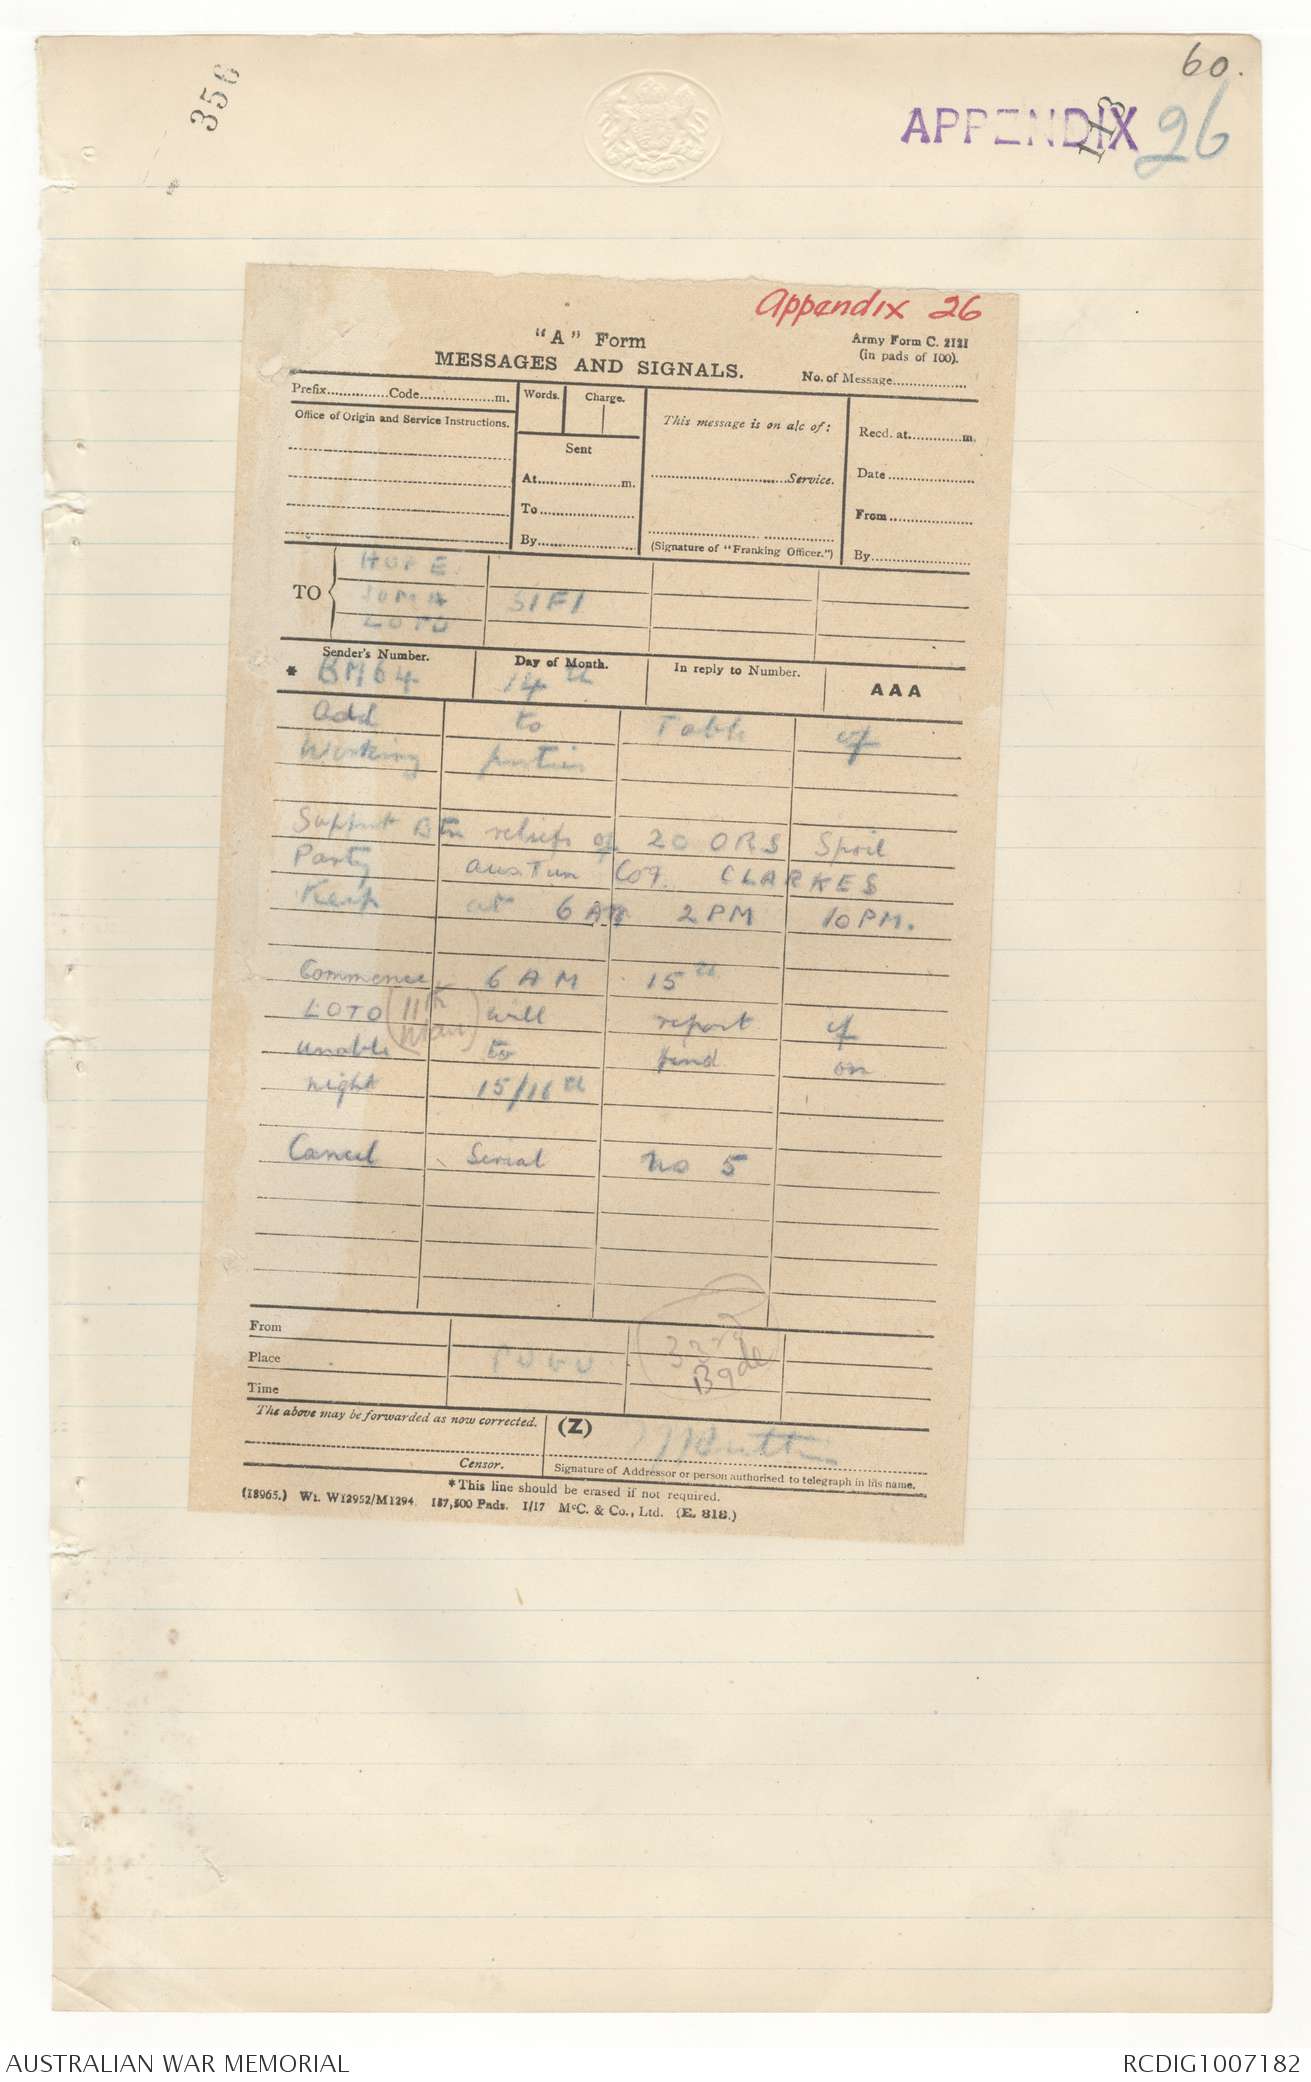 60.
356
APPENDIX 26
113
Appendix 26
"A" Form
Army Form C. 2121
(in pads of 100).
MESSAGES AND SIGNALS.
No. of Message
Prefix Code m.
Words. Charge.
This message is on a/c of:
Recd. at m.
Office of Origin and Service Instructions.
Sent
At m.
Service.
Date
To
From
By
(Signature of "Franking Officer.")
By
TO
HOPE
SOMA SIFI
LOTO
Sender's Number.
Day of Month.
In reply to Number.
AAA
* BM64 14th
Add to Table of
Working parties
Support Btn reliefs of 20 ORS Spoil
Party Aus Tun Coy. CLARKES
Keep at 6 AM 2 PM 10 PM.
Commence 6 AM 15th
LOTO (11th Man) will report if
unable to find on
night 15/16th
Cancel Serial no 5
From
Place
33rd
Bgde
Time
The above may be forwarded as now corrected.
(Z)
Censor.
Signature of Addressor or person authorised to telegraph in his name.
*This line should be erased if not required.
(18965.) Wt. W12952/M1294. 187,500 Pads. 1/17 McC. & Co., Ltd. (E. 818.)
AUSTRALIAN WAR MEMORIAL
RCDIG1007182